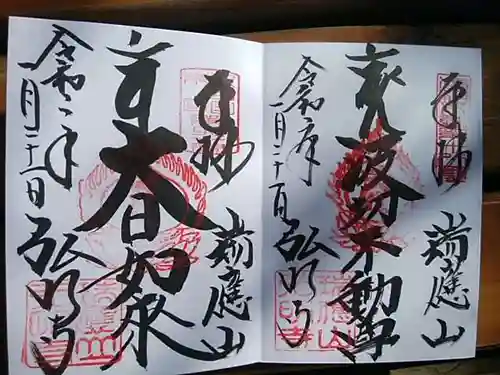 奉拝
瑞應山
波切不動尊
令和二年
一月二十一日
弘明寺
奉拝
瑞應山
大日如来
令和二年
一月二十一日
弘明寺